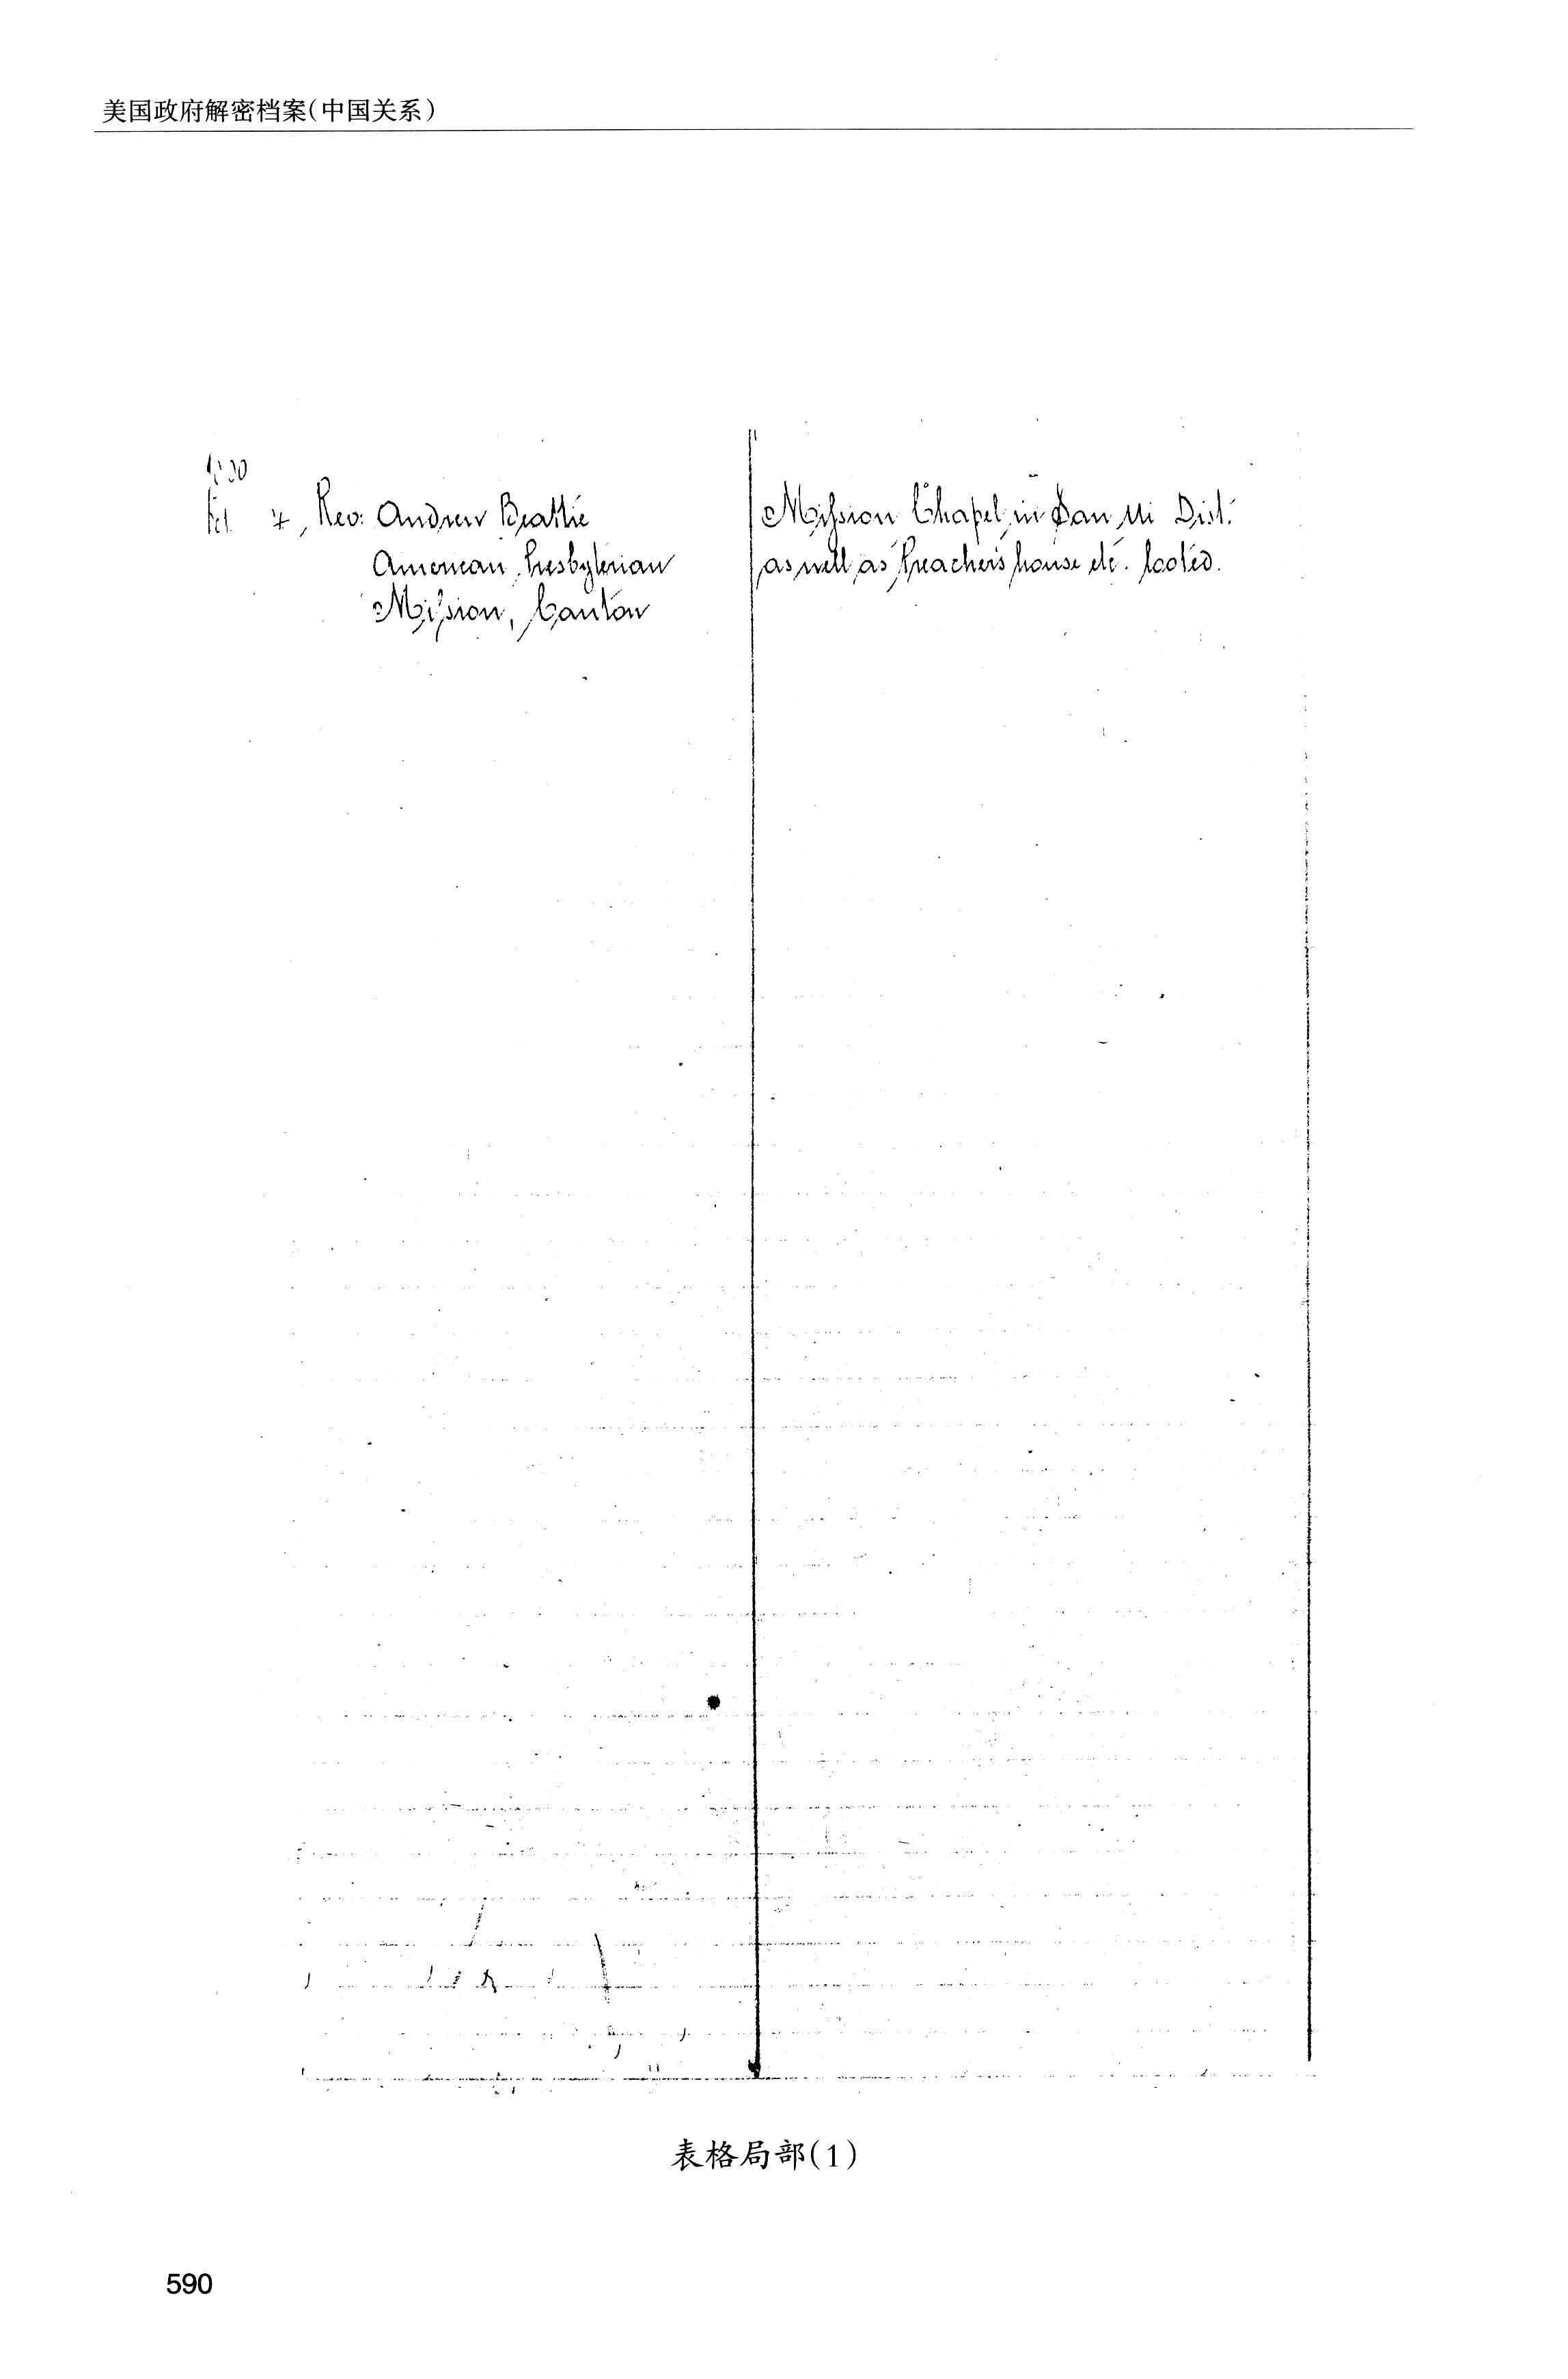 美国政府解密档案(中国关系)
4, Rev: Andrew Beattie
American Presbyterian
Mission, Canton
Mission Chapel in Dist:
as well as Preacher's house etc. looted.
表格局部(1)
590